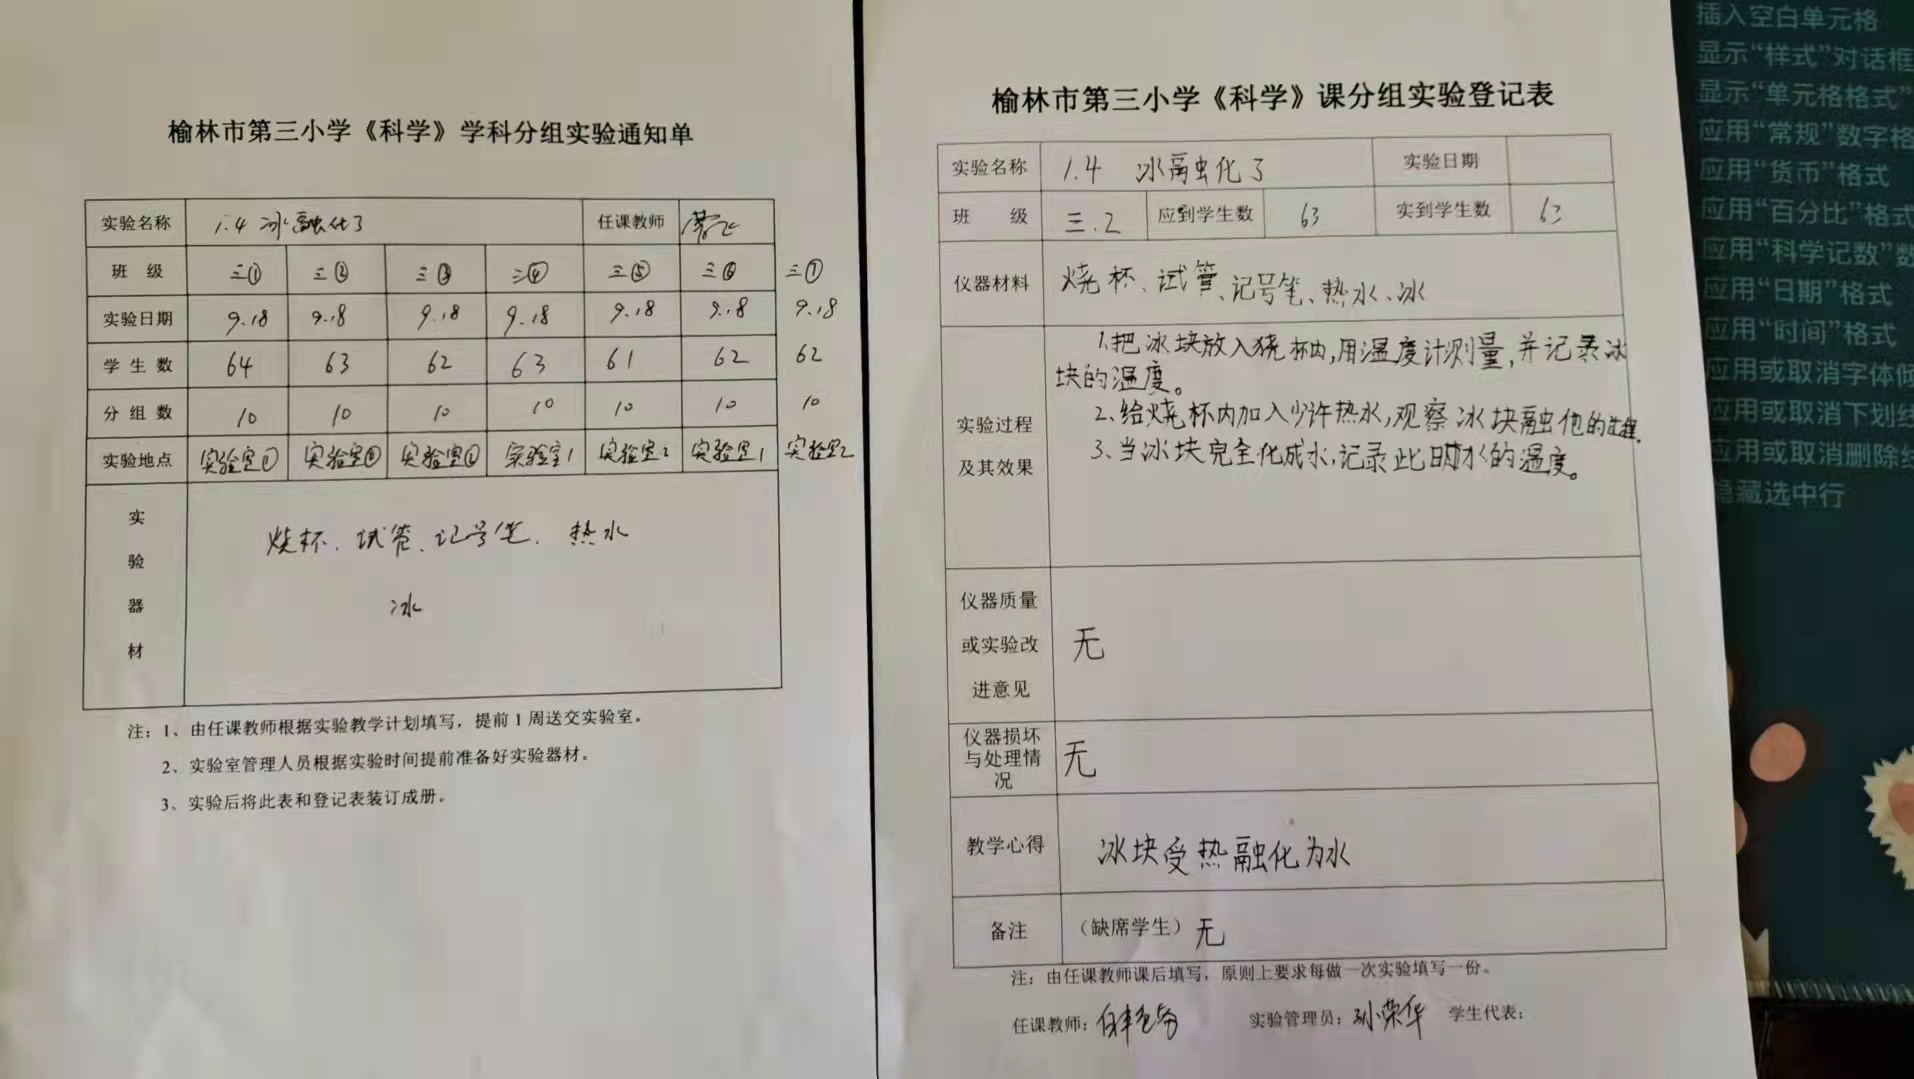 榆林市第三小学《科学》学科分组实验通知单
实验名称 1.4 冰融化了 任课教师
班级 三① 三② 三③ 三④ 三⑤ 三⑥ 三⑦
实验日期 9.18 9.18 9.18 9.18 9.18 9.18 9.18
学生数 64 63 62 63 61 62 62
分组数 10 10 10 10 10 10 10
实验地点 实验室① 实验室② 实验室 实验室1 实验室2 实验室1 实验室2
实验器材
烧杯、试管、记号笔、热水
冰
注：1、由任课教师根据实验教学计划填写，提前1周送交实验室。
2、实验室管理人员根据实验时间提前准备好实验器材。
3、实验后将此表和登记表装订成册。
榆林市第三小学《科学》课分组实验登记表
实验名称 1.4 冰融化了 实验日期
班级 三.2 应到学生数 63 实到学生数 63
仪器材料 烧杯、试管、记号笔、热水、冰
实验过程及其效果
1.把冰块放入烧杯内,用温度计测量,并记录冰
块的温度。
2.给烧杯内加入少许热水,观察冰块融化的过程.
3.当冰块完全化成水,记录此时水的温度。
仪器质量或实验改进意见 无
仪器损坏与处理情况 无
教学心得 冰块受热融化为水
备注 （缺席学生）无
注：由任课教师课后填写，原则上要求每做一次实验填写一份。
任课教师： 实验管理员：孙荣华 学生代表：
插入空白单元格
显示“样式”对话框
显示“单元格格式”
应用“常规”数字格
应用“货币”格式
应用“百分比”格式
应用“科学记数”数
应用“日期”格式
应用“时间”格式
应用或取消字体倾
应用或取消下划线
应用或取消删除线
隐藏选中行